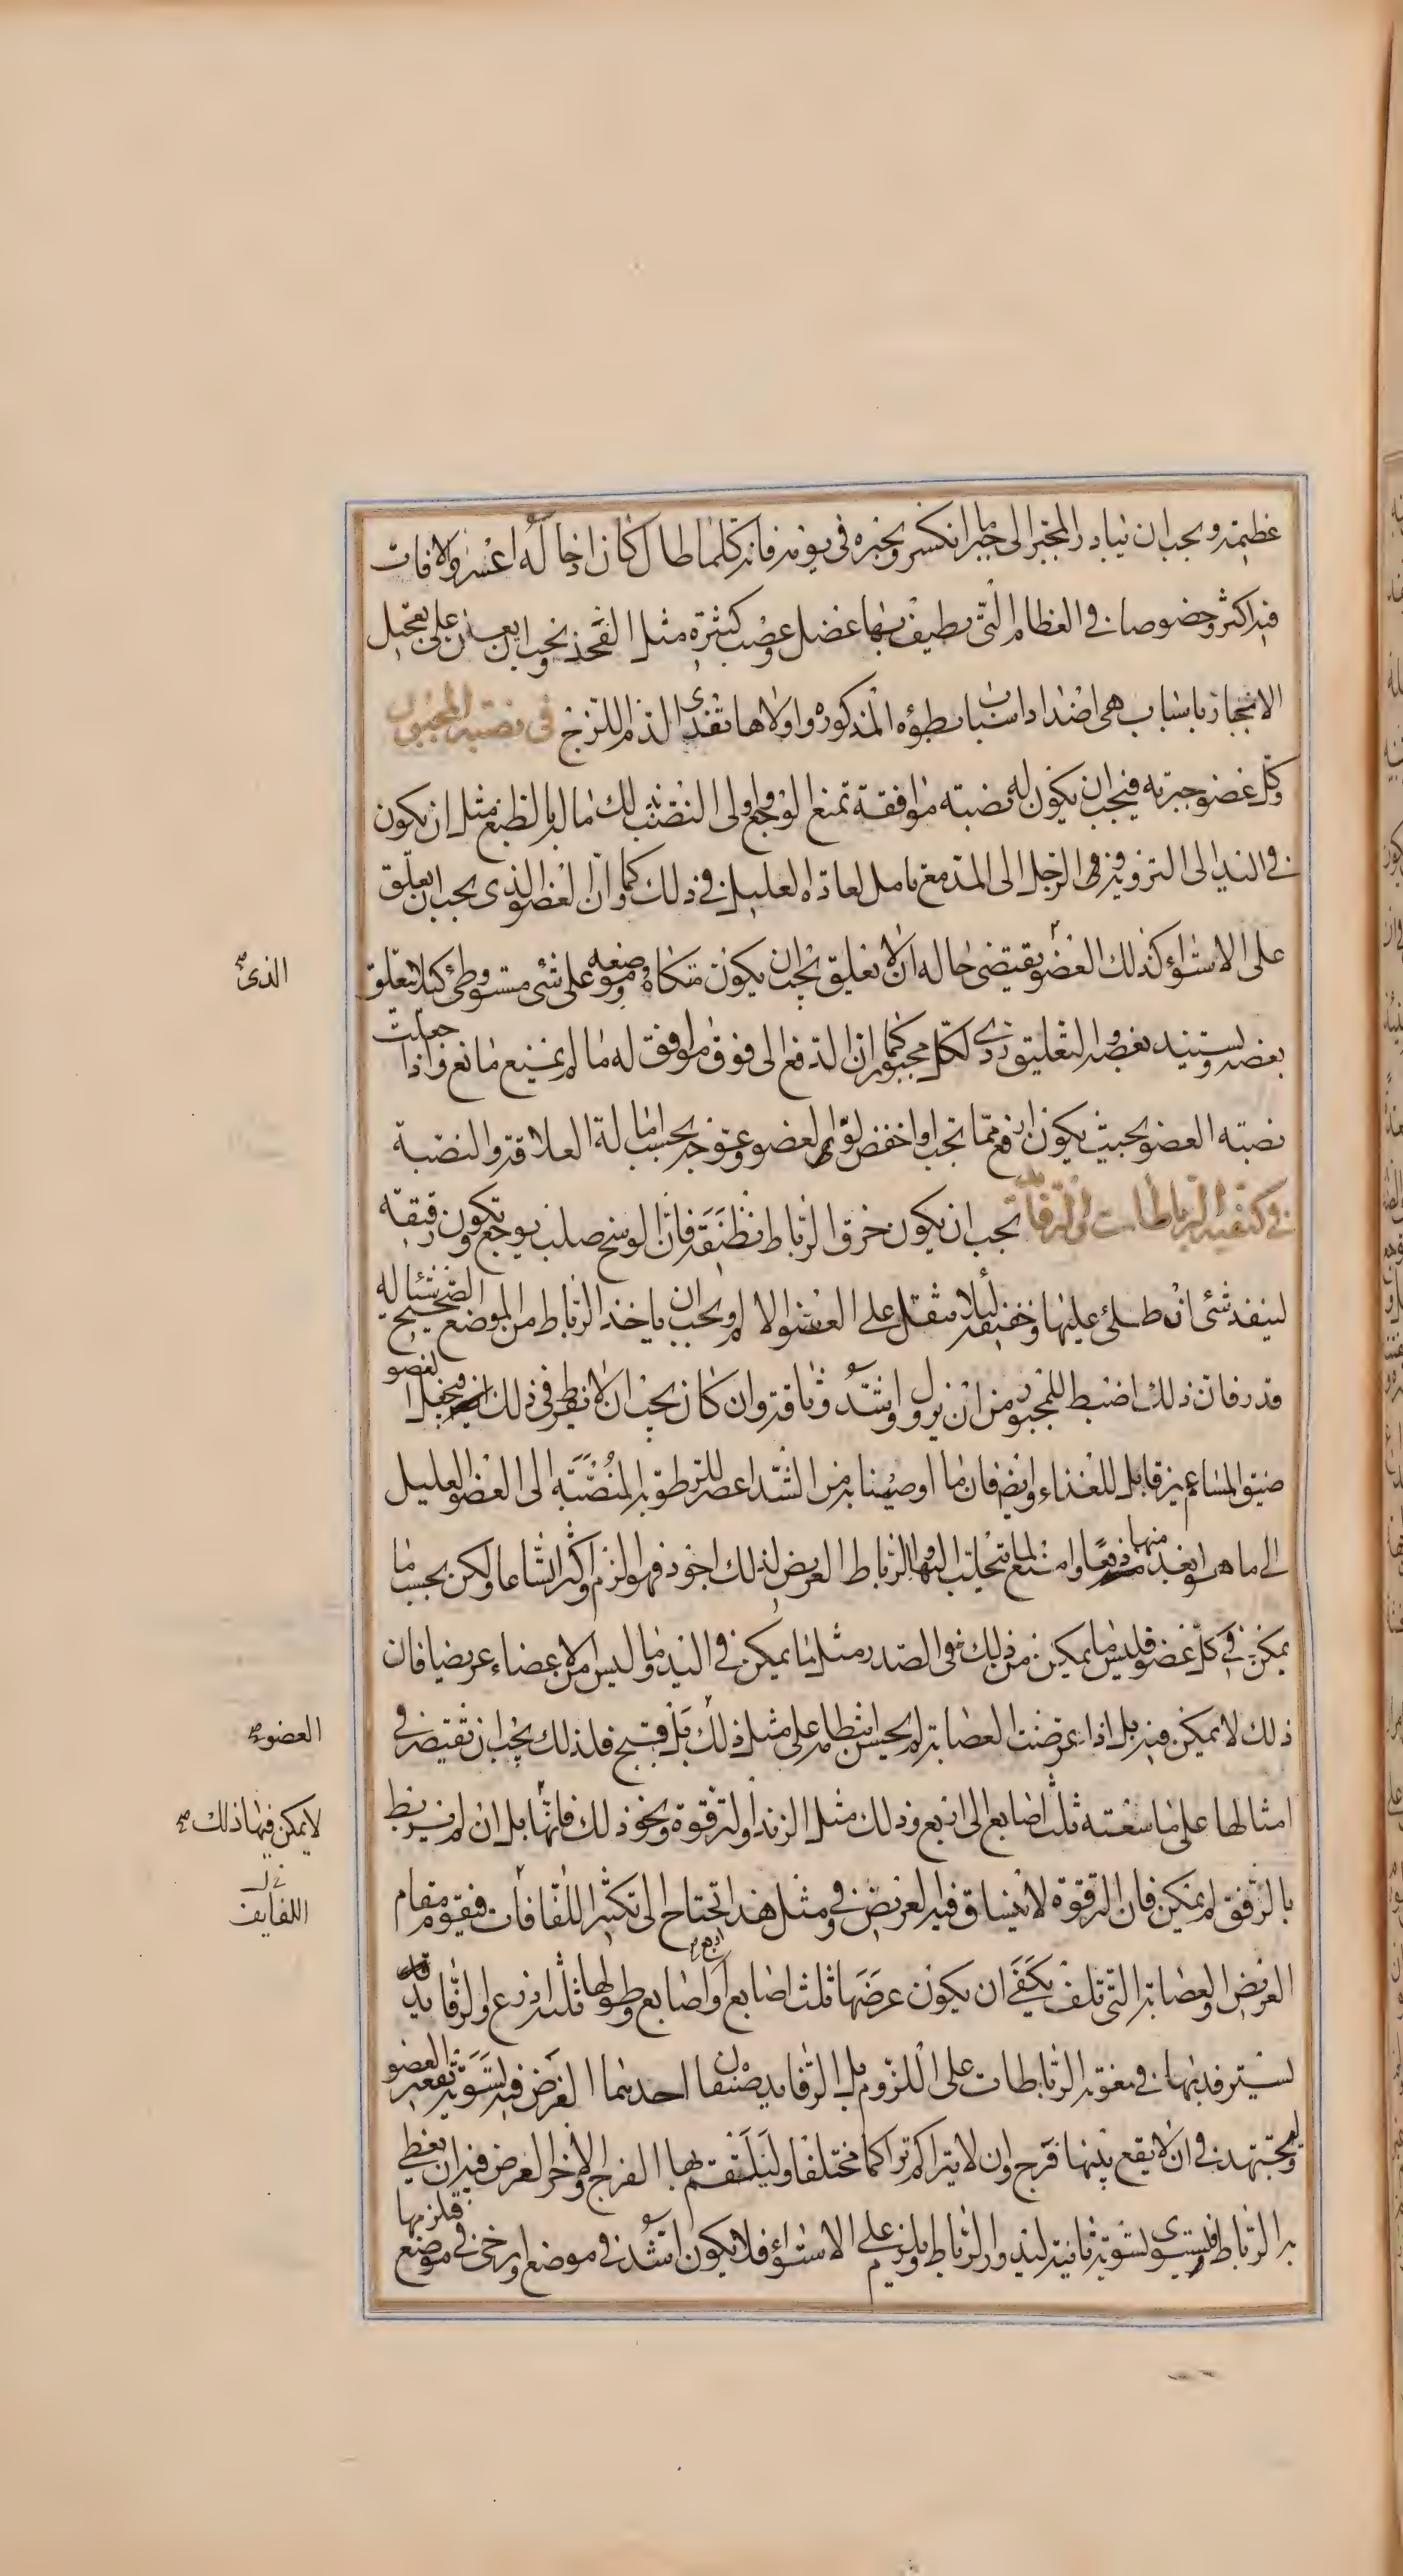 عظيمة ويجب ان يبادر المجبر الى جبر ما انكسر ويجبره فى يومه فانه كلما طال كان ادخاله اعسر والافات
فيه اكثر وخصوصا فى العظام التى يطيف بها عضل وعصب كثيرة مثل الفخذ ويجب ان يعان على تعجيل
الانجبار باسباب هى اضداد اسباب بطؤه المذكورة واولاها تغذى الدم اللزج فى نصبة المجبور
وكل عضو جبرته فيجب ان يكون له نصبة موافقة تمنع الوجع واولى النصب بذلك ما له بالطبع مثل ان يكون
فى اليد الى التزوية وفى الرجل الى المد مع تامل لعادة العليل فى ذلك وكما ان العضو الذى يجب ان يعلق
على الاستواء كذلك العضو يقتضى حاله ان لا يعلق يجب ان يكون متكاه وموضعه على شئ مستو وطئ كيلا يتعلق
الذى
بعضه ويستند بعضه والتعليق ردى لكل مجبور كما ان الدفع الى فوق موافق له ما لم يمنع مانع واذا جعلت
نصبة العضو بحيث يكون ارفع مما يجب او اخفض لوى العضو وعوجه بحسب امالة العلاقة والنصبة
فى كيفية الرباطات والرفائد يجب ان يكون خرق الرباط نظيفة فان الوسخ صلب يوجع وتكون رقيقة
لينفذ شئ ان طلى عليها وخفيفة لئلا يثقل على العضو الالم ويجب ان ياخذ الرباط من الموضع الصحيح شيئا له
قدر فان ذلك اضبط للمجبور من ان يزول واشد وثاقة وان كان يجب ان لا يفرط فى ذلك فيجعل العضو
ضيق المسام غير قابل للغذاء وايضا فان ما اوصينا به من الشد اعصر للرطوبة المنصبة الى العضو العليل
الى ما هو ابعد منها دفعا وامنع لما يتحلب اليها والرباط العريض لذلك اجود فهو الزم واكثر اتساعا ولكن بحسب ما
يمكن فى كل عضو فليس ما يمكن من ذلك فى الصدر مثل ما يمكن فى اليد وما ليس من الاعضاء عريضا فان
ذلك لا يمكن فيه بل اذا عرضت العصابة لم يحسن انتظامه على مثل ذلك بل قبح فلذلك يجب ان تقتصر فى
العضو
امثالها على ما سعته ثلث اصابع الى اربع وذلك مثل الزند والترقوة ونحو ذلك فانها بل ان لم يربط
لا يمكن فيها ذلك
بالرفق لم يمكن فان الترقوة لا ينساق فيه العريض وفى مثل هذا تحتاج الى تكثير اللفافات فيقوم مقام
اللفايف
العريض والعصابة التى تلف يكفى ان يكون عرضها ثلث اصابع او اربع اصابع وطولها ثلثة اذرع والرفايد
ليسترفد بها فى معونة الرباطات على اللزوم بل الرفايد صنفان احدهما الغرض فيه تسوية تقعير العضو
ويجتهد فى ان لا يقع بينها فرج وان لا يتراكم تراكما مختلفا وليلتقم بها الفرج والاخر الغرض فيه ان يغطى
به الرباط فيستوى تسوية ثانية ليدور الرباط ويلزم على الاستواء فلا يكون اشد فى موضع وارخى فى موضع فلزمها